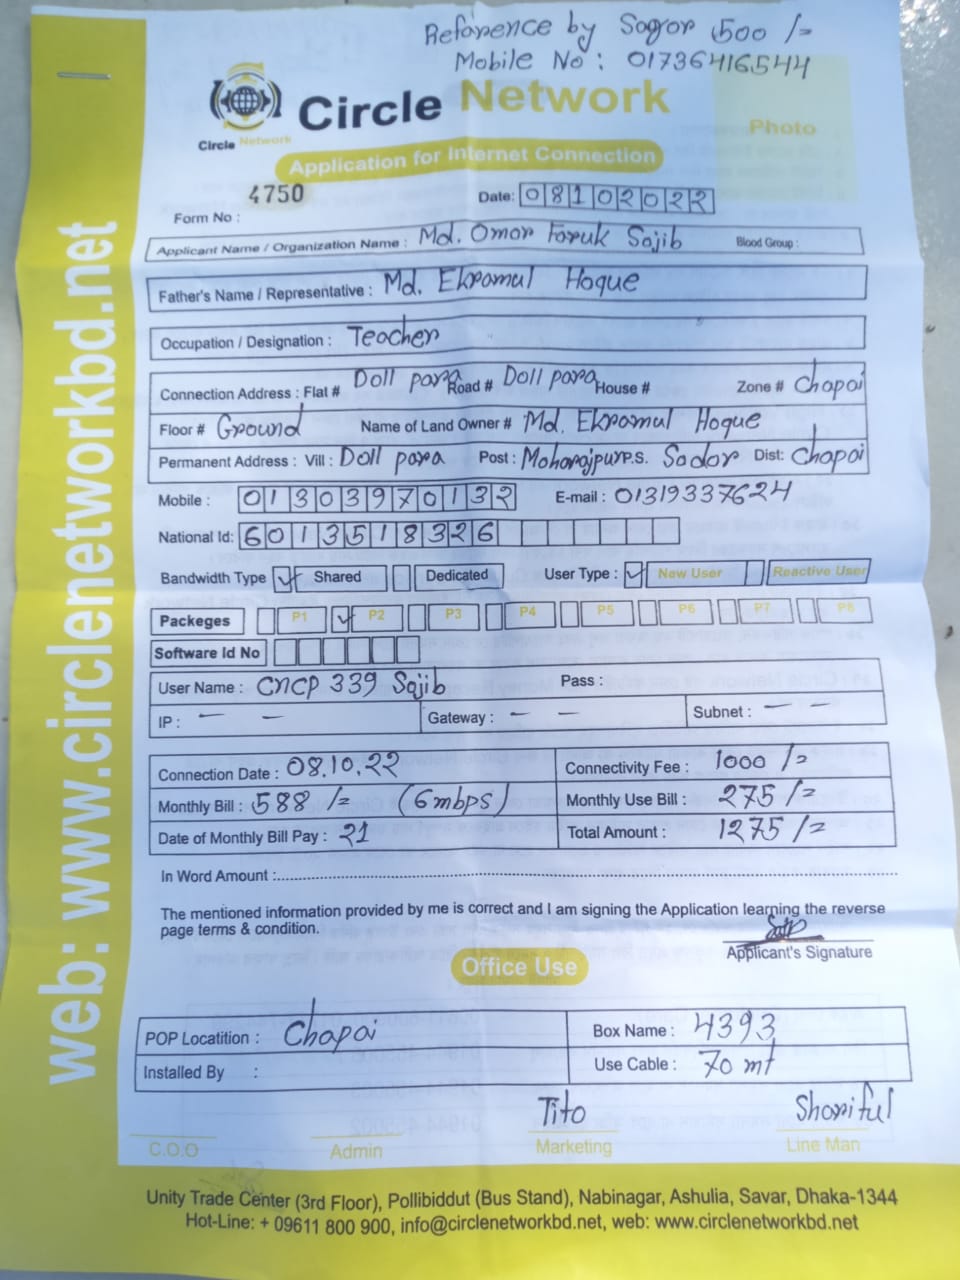 Reference by Sagor 500 /-
Mobile No : 01736416544
Circle Network
Circle Network
Photo
Application for Internet Connection
4750
Form No :
Date: 08102022
Applicant Name / Organization Name : Md. Omar Faruk Sajib Blood Group :
Father's Name / Representative : Md. Ekramul Hoque
Occupation / Designation : Teacher
Connection Address : Flat # Doll para Road # Doll para House # Zone # Chapai
Floor # Ground Name of Land Owner # Md. Ekramul Hoque
Permanent Address : Vill : Doll para Post : Moharajpur P.S. Sador Dist: Chapai
Mobile : 01303970132 E-mail : 01319337624
National Id: 6013518326
Bandwidth Type Shared Dedicated User Type : New User Reactive User
Packeges P1 P2 P3 P4 P5 P6 P7 P8
Software Id No
User Name : CNCP 339 Sajib Pass :
IP : – – Gateway : – – Subnet : – –
Connection Date : 08.10.22 Connectivity Fee : 1000 /=
Monthly Bill : 588 /= (6mbps) Monthly Use Bill : 275 /=
Date of Monthly Bill Pay : 21 Total Amount : 1275 /=
In Word Amount :
The mentioned information provided by me is correct and I am signing the Application learning the reverse
page terms & condition.
Applicant's Signature
Office Use
POP Locatition : Chapai Box Name : 4393
Installed By : Use Cable : 70 mt
Tito Shariful
C.O.O Admin Marketing Line Man
Unity Trade Center (3rd Floor), Pollibiddut (Bus Stand), Nabinagar, Ashulia, Savar, Dhaka-1344
Hot-Line: + 09611 800 900, info@circlenetworkbd.net, web: www.circlenetworkbd.net
web: www.circlenetworkbd.net